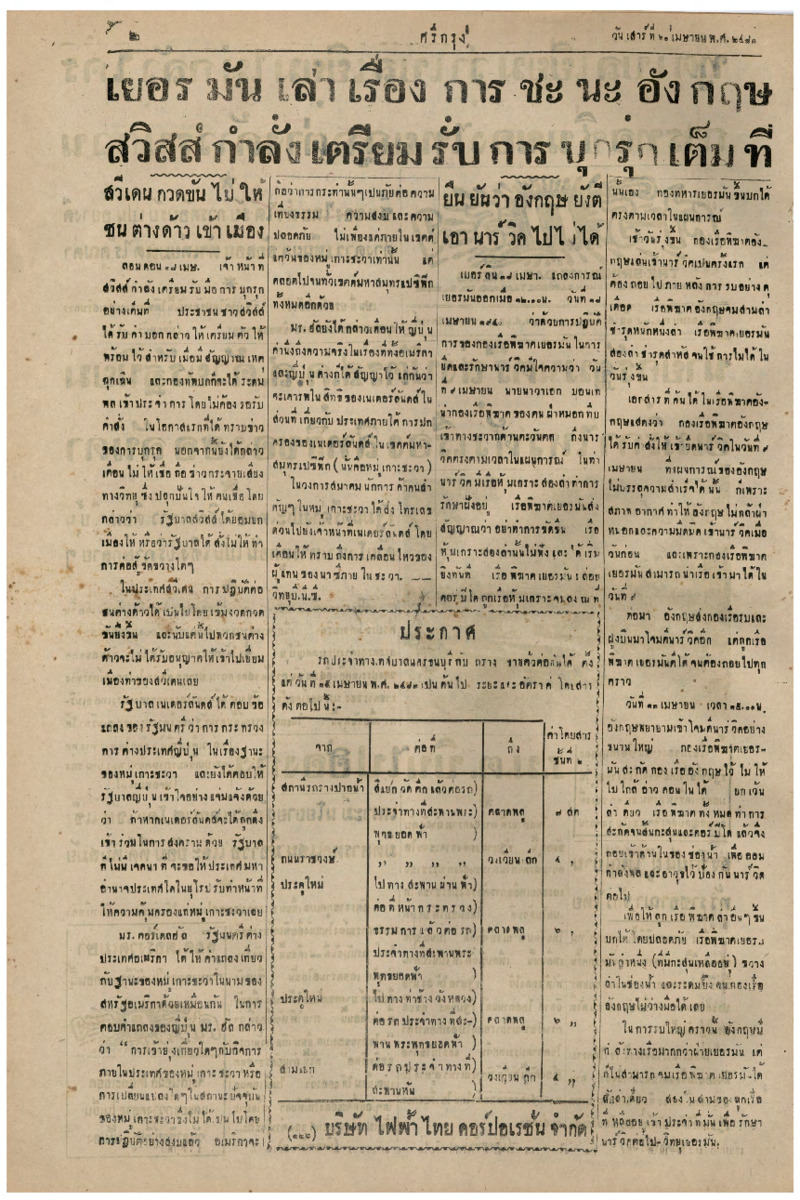 ๒
ศรีกรุง
วันเสาร์ที่ ๒๑ เมษายน พ.ศ. ๒๔๘๓
เยอรมันเล่าเรื่องการชะนะอังกฤษ
สวิสส์กำลังเตรียมรับการบุกรุกเต็มที่
สวีเดนกวดขันไม่ให้
ชนต่างด้าวเข้าเมือง
ลอนดอน ๑๘ เมษ. เจ้าหน้าที่
สวิสส์กำลังเตรียมรับมือการบุกรุก
อย่างเต็มที่ ประชาชนชาวสวิสส์
ได้รับคำบอกกล่าวให้เตรียมตัวให้
พร้อมไว้สำหรับเมื่อมีสัญญาณเหตุ
ฉุกเฉิน และกองทัพบกก็จะได้ระดม
พลเข้าประจำการโดยไม่ต้องรอรับ
คำสั่ง ในโอกาสแรกที่ได้ทราบข่าว
ของการบุกรุก นอกจากนั้นยังได้กล่าว
เตือนไม่ให้เชื่อถือข่าวกระจายเสียง
ทางวิทยุซึ่งปลุกปั่นใจให้คนเชื่อโดย
กล่าวว่า รัฐบาลสวิสส์ได้ยอมยก
เมืองให้ หรือว่ารัฐบาลได้สั่งไม่ให้ทำ
การต่อสู้ขัดขวางใดๆ
ในประเทศสวีเดน การปฏิบัติต่อ
ชนต่างด้าวได้เป็นไปโดยเข้มงวดกวด
ขันยิ่งขึ้น และนับแต่นี้ไปพวกชนต่าง
ด้าวจะไม่ได้รับอนุญาตให้เข้าไปเยี่ยม
เมืองท่าของสวีเดนเลย
รัฐบาลเนเดอร์ลันดส์ได้ตอบข้อ
แถลงของรัฐมนตรีว่าการกระทรวง
การต่างประเทศญี่ปุ่น ในเรื่องฐานะ
ของหมู่เกาะชะวา และยังได้ตอบให้
รัฐบาลญี่ปุ่นเข้าใจอย่างแจ่มแจ้งด้วย
ว่า ถ้าหากเนเดอร์ลันดส์จะได้ถูกดึง
เข้าร่วมในการสงครามด้วย รัฐบาล
ก็ไม่มีเจตนาที่จะขอให้ประเทศมหา
อำนาจประเทศใดในยุโรปรับทำหน้าที่
ให้ความคุ้มครองแก่หมู่เกาะชะวาเลย
มร. คอร์เดลฮัล รัฐมนตรีต่าง
ประเทศอเมริกา ได้ให้คำแถลงเกี่ยว
กับฐานะของหมู่เกาะชะวาในนามของ
สหรัฐอเมริกาด้วยเหมือนกัน ในการ
ตอบคำแถลงของญี่ปุ่น มร. ฮัล กล่าว
ว่า “การเข้ายุ่งเกี่ยวใดๆกับกิจการ
ภายในประเทศของหมู่เกาะชะวาหรือ
การเปลี่ยนแปลงใดๆในสถานะปัจจุบัน
ของหมู่เกาะชะวาซึ่งไม่ได้เป็นไปโดย
การปฏิบัติอย่างสงบแล้ว อเมริกาจะ
ถือว่าการกระทำนั้นๆเป็นภัยต่อความ
เที่ยงธรรม ความสงบและความ
ปลอดภัย ไม่เพียงแต่ภายในเขตต์
แคว้นของหมู่เกาะชะวาเท่านั้น แต่
ตลอดไปจนทั่วเขตต์มหาสมุทรแปซิฟิก
ทั้งหมดอีกด้วย
มร. ฮัลยังได้กล่าวเตือนให้ญี่ปุ่น
คำนึงถึงความจริงในเรื่องที่ทั้งอเมริกา
และญี่ปุ่นต่างก็ได้สัญญาไว้แก่กันว่า
จะเคารพในสิทธิของเนเดอร์ลันดส์ใน
ส่วนที่เกี่ยวกับประเทศภายใต้การปก
ครองของเนเดอร์ลันดส์ในเขตต์มหา-
สมุทรแปซิฟิก (นี่คือหมู่เกาะชะวา)
ในวงการสมาคมนักการค้าคนสำ
คัญๆในหมู่เกาะชะวาได้ส่งโทรเลข
ด่วนไปยังเจ้าหน้าที่เนเดอร์ลันดส์ โดย
เตือนให้ทราบถึงการเคลื่อนไหวของ
ผู้แทนของนาซีภายในชะวา. —
วิทยุบี.บี.ซี.
ยืนยันว่าอังกฤษยังตี
เอานาร์วิคไปไม่ได้
เบอร์ลิน ๑๘ เมษา. แถลงการณ์
เยอรมันออกเมื่อ ๑๒.๐๐ น. วันที่ ๑๘
เมษายน ๑๙๔๐ ว่าด้วยการปฏิบัติ
การของกองเรือพิฆาตเยอรมันในการ
ยึดและรักษานาร์วิคมีใจความว่า วัน
ที่ ๙ เมษายน นายนาวาเอก บอนเท่
นำกองเรือพิฆาตของตนฝ่าหมอกทึบ
เข้าทางชะวากด้านตะวันตก ถึงนาร์
วิคตรงตามเวลาในแผนการณ์ ในท่า
นาร์วิคมีเรือหุ้มเกราะสองลำทำการ
รักษาฝั่งอยู่ เรือพิฆาตเยอรมันส่ง
สัญญาณว่าอย่าทำการขัดขืน เรือ
หุ้มเกราะสองลำนั้นไม่ฟังและได้เริ่ม
ยิงทันที เรือพิฆาตเยอรมันปล่อย
ตอร์ปิโดถูกเรือหุ้มเกราะจมลง ณ ที่
นั้นเอง กองทหารเยอรมันขึ้นบกได้
ตรงตามเวลาในแผนการณ์
เช้าวันรุ่งขึ้น กองเรือพิฆาตอัง-
กฤษแล่นเข้านาร์วิคเป็นครั้งแรก แต่
ต้องถอยไปภายหลังการรบอย่างดุ
เดือด เรือพิฆาตอังกฤษจมสามลำ
ชำรุดหนักหนึ่งลำ เรือพิฆาตเยอรมัน
สองลำชำรุดสาหัสจนใช้การไม่ได้ใน
วันรุ่งขึ้น
เอกสารที่ค้นได้ในเรือพิฆาตอัง-
กฤษแสดงว่า กองเรือพิฆาตอังกฤษ
ได้รับคำสั่งให้เข้ายึดนาร์วิคในวันที่ ๙
เมษายน ที่แผนการณ์ของอังกฤษ
ไม่บรรลุความสำเร็จได้นั้น ก็เพราะ
สภาพอากาศทำให้อังกฤษไม่กล้าฝ่า
หมอกและความมืดมิดเข้านาร์วิคเมื่อ
วันก่อน และเพราะกองเรือพิฆาต
เยอรมันสามารถนำเรือเข้ามาได้ใน
วันที่ ๙
ต่อมา อังกฤษส่งกองเรือรบและ
ฝูงบินมาโจมตีนาร์วิคอีก แต่ถูกเรือ
พิฆาตเยอรมันตีโต้จนต้องถอยไปทุก
คราว
วันที่ ๑๓ เมษายน เวลา ๑๕.๐๐ น.
อังกฤษพยายามเข้าโจมตีนาร์วิคอย่าง
ขนานใหญ่ กองเรือพิฆาตเยอร-
มันสะกัดกองเรืออังกฤษไว้ไม่ให้
ไปใกล้อ่าวตอนในได้ ยกเว้น
ลำเดียว เรือพิฆาตทั้งหมดทำการ
สะกัดจนสิ้นกระสุนและตอร์ปิโด แล้วจึง
ถอยเข้าด้านในของช่องน้ำ เพื่อถอม
กำลังพลและอาวุธไว้ป้องกันนาร์วิค
ต่อไป
เพื่อให้ลูกเรือพิฆาตลำอื่นๆขึ้น
บกได้โดยปลอดภัย เรือพิฆาตเยอร-
มันลำหนึ่ง (ที่มีกระสุนเหลืออยู่) ขวาง
ลำในช่องน้ำ และระดมยิงจนกองเรือ
อังกฤษไม่วางมือได้เลย
ในการรบใหญ่คราวนี้ อังกฤษมี
กำลังทางเรือมากกว่าฝ่ายเยอรมัน แต่
ก็ไม่สามารถจมเรือพิฆาตเยอรมันได้
สักลำเดียว ส่วนในด้านของลูกเรือ
ที่เหลืออยู่ เข้าประจำที่มั่นเพื่อรักษา
นาร์วิคต่อไป-วิทยุเยอรมัน.
ประกาศ
รถประจำทางเทศบาลนครธนบุรีกับรถราง ขายตั๋วต่อกันได้ ตั้ง
แต่วันที่ ๑๕ เมษายน พ.ศ. ๒๔๘๓ เป็นต้นไป ระยะและอัตราค่าโดยสาร
ดังต่อไปนี้:-
จาก ต่อที่ ถึง ค่าโดยสาร ชั้นที่ ๒
สถานีรถรางปากน้ำ สี่แยกวัดตึกแล้วต่อรถ)
ประจำทางที่สะพานพระ) ตลาดพลู ๗ สต
พุทธยอดฟ้า )
ถนนราชวงษ์ ,, ,, ,, ,, วงเวียนเล็ก ๕ ,,
ประตูใหม่ ไปทางสะพานผ่านฟ้า)
ต่อที่หน้ากระทรวง)
ธรรมการแล้วต่อรถ) ตลาดพลู ๖ ,,
ประจำทางที่สะพานพระ)
พุทธยอดฟ้า )
ประตูใหม่ ไปทางท่าช้างวังหลวง)
ต่อรถประจำทางที่สะ-) ตลาดพลู ๖ ,,
พานพระพุทธยอดฟ้า )
สามแยก ต่อรถประจำทางที่) วงเวียนเล็ก ๕ ,,
สะพานหัน )
บริษัทไฟฟ้าไทยคอร์ปอเรชั่น จำกัด